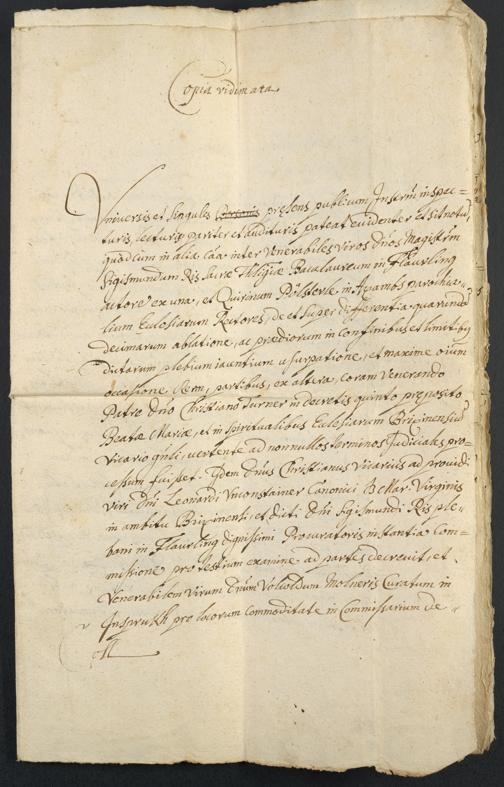 Copia vidimata
Universis et Singulis præsens publicum Instrm̄ inspec=
turis, lecturis pariter et audituris pateat evidenter et sit notū,
quod cum in aliis cāa inter Venerabiles viros Dn̄os Magistrum
Sigismundum Ris Sacræ Thligiæ Bacalaureum in Flaurling
actore ex una, et Quirinum Pölsterle in Ambs parochia=
lium Ecclesiarum Rectores, de et super differentia quarundā
decimarum ablatione, ac prædiorum in Confinibus et limitibq
Dictarum plebium iacentium usurpatione, et maxime
occasione partibus, ex altera, coram Venerando
Patre Dn̄o Christiano Turner in decretis quinto præposito
Beatæ Mariæ, et in spiritualibus Ecclesiarum Brixinensis
Vicario gnli, vertente ad nonnullos terminos Judiciales pro=
cessum fuisset. Idem Dn̄us Christianus Vicarius ad providi
viri Dn̄i Leonardi Canonici B. Mar. Virginis
in ambitu Brixinensi, et dicti Dn̄i Sigismundi Ris ple=
bani in Flaurling dignissimi Procuratoris instantia Com=
missione pro testium examine ad partes decrevit, et
Venerabilem virum Dn̄um Volcoldum Molneris Curatum in
Insprukh pro locorum commoditate in Commissarium de=